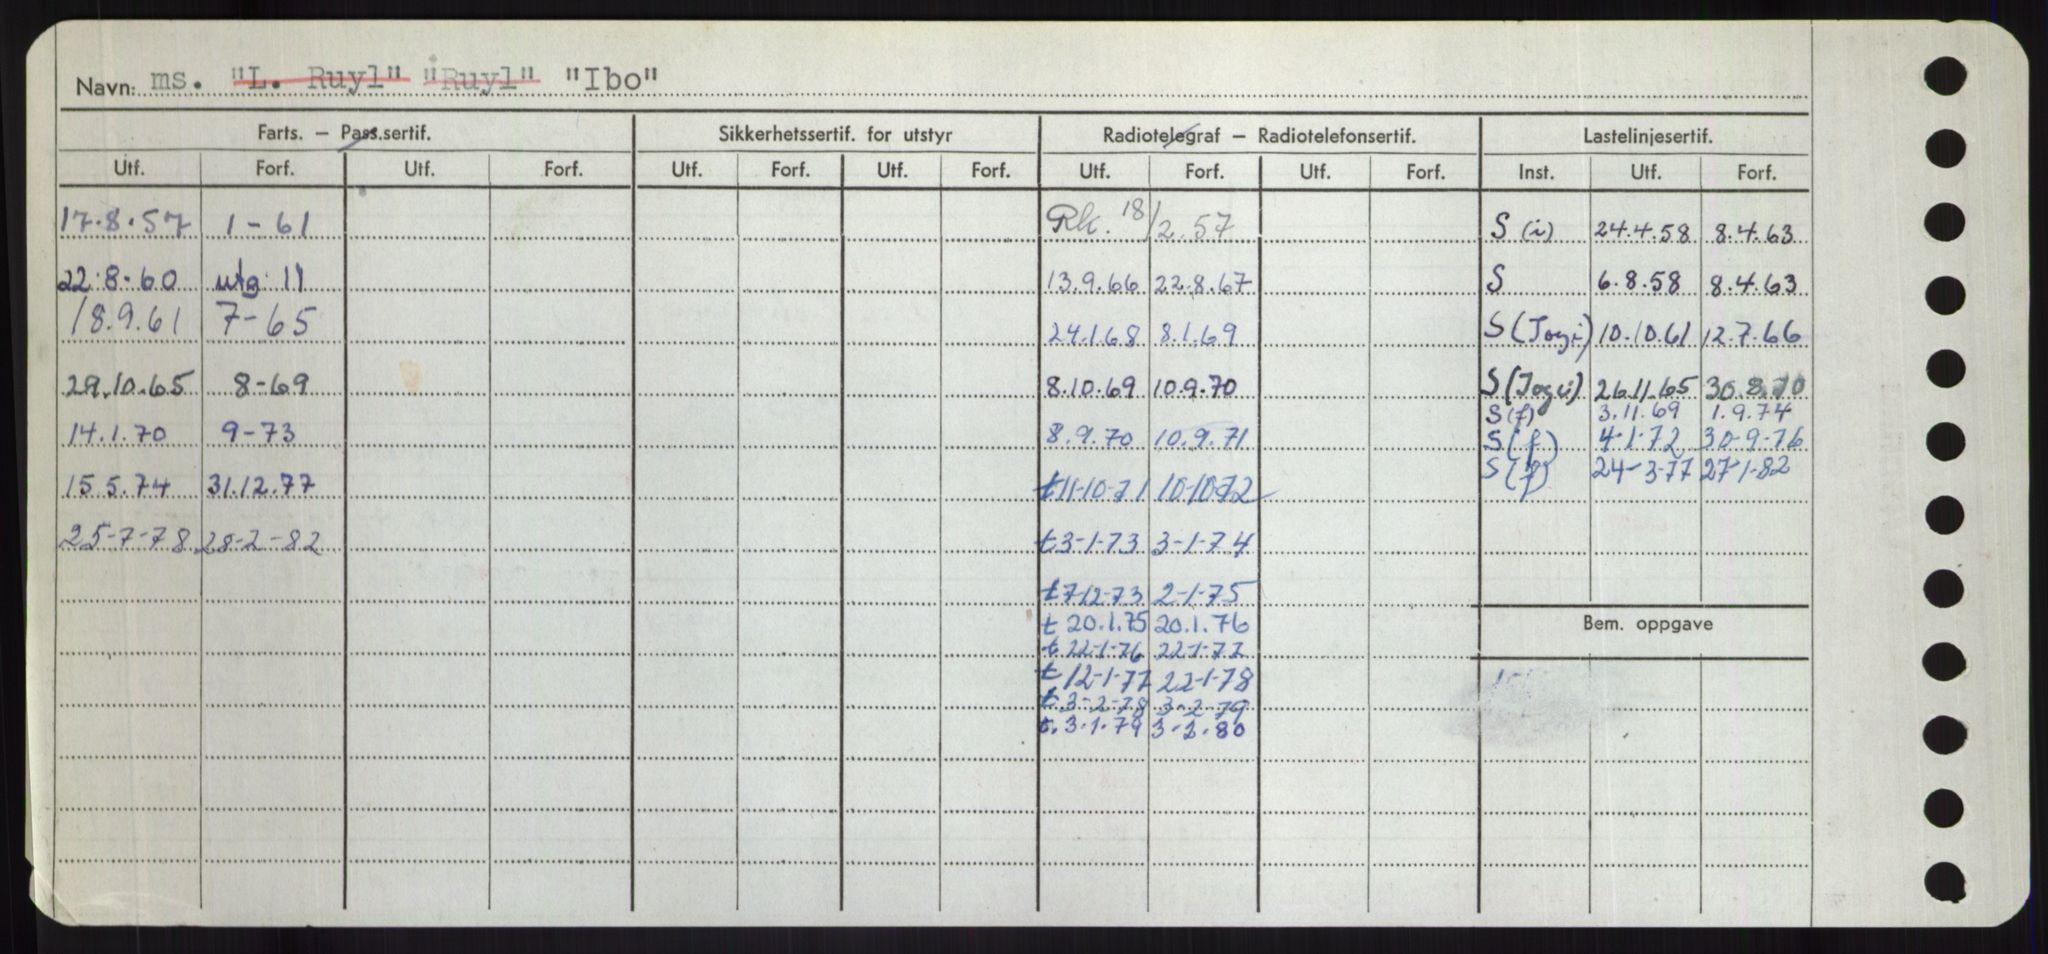 Navn: ms. "L. Ruyl" "Ruyl" "Ibo"
Farts. – Pass.sertif. Sikkerhetssertif. for utstyr Radiotelegraf – Radiotelefonsertif. Lastelinjesertif.
Utf. Forf. Utf. Forf. Utf. Forf. Utf. Forf. Utf. Forf. Utf. Forf. Inst. Utf. Forf.
17.8.57 1-61 Rk. 18/2.57 S (i) 24.4.58 8.4.63
22.8.60 utg 11 13.9.66 22.8.67 S 6.8.58 8.4.63
18.9.61 7-65 24.1.68 8.1.69 S (Jogi) 10.10.61 12.7.66
29.10.65 8-69 8.10.69 10.9.70 S (Jogi) 26.11.65 30.8.70
S (f) 3.11.69 1.9.74
14.1.70 9-73 8.9.70 10.9.71 S (f) 4-1-72 30-9-76
S (f) 24-3-77 27-1-82
15.5.74 31.12.77 t11-10-71 10-10-72
25-7-78 28-2-82 t3-1-73 3-1-74
t7-12-73 2-1-75
t 20.1.75 20.1.76 Bem. oppgave
t 22-1-76 22-1-77
t 12-1-77 22-1-78
t 3-2-78 3-2-79
t. 3.1.79 3-2-80